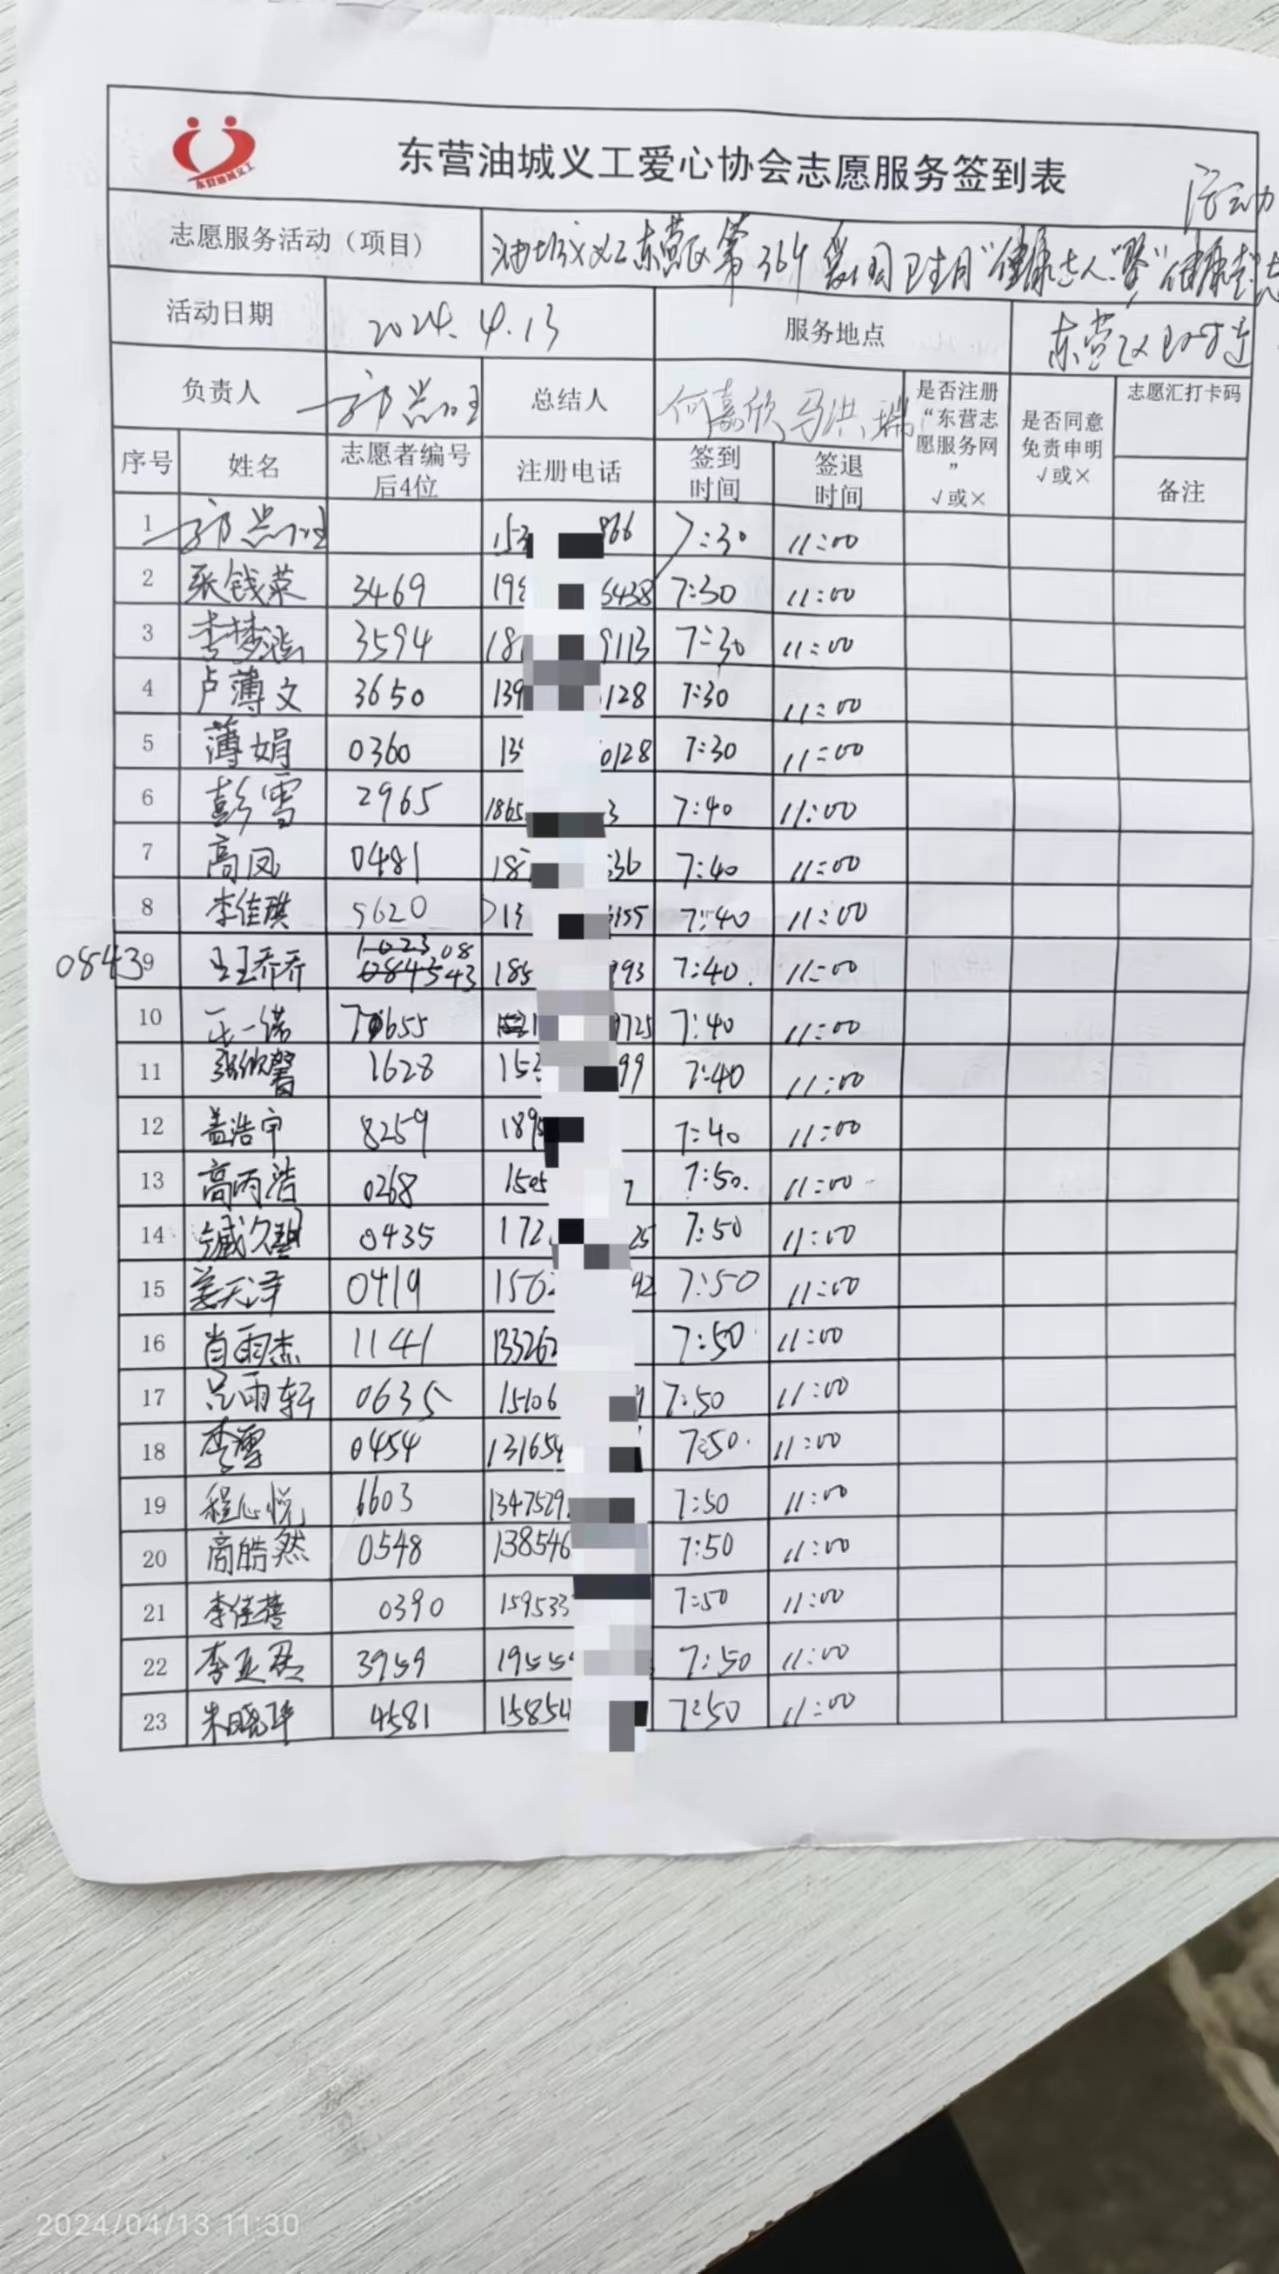 东营油城义工
东营油城义工爱心协会志愿服务签到表
活动
志愿服务活动（项目） 油城义工东营区第364 爱国卫生月"健康
活动日期 2024.4.13 服务地点 东营区
负责人 总结人 何嘉欣 马洪瑞 是否注册“东营志愿服务网” √或× 是否同意免责申明 √或× 志愿汇打卡码
序号 姓名 志愿者编号后4位 注册电话 签到时间 签退时间 备注
1 153 866 7:30 11:00
2 张钱荣 3469 195 5438 7:30 11:00
3 李梦涵 3594 181 9113 7:30 11:00
4 卢薄文 3650 139 128 7:30 11:00
5 薄娟 0360 139 0128 7:30 11:00
6 彭雪 2965 1865 3 7:40 11:00
7 高凤 0481 187 36 7:40 11:00
8 李佳琪 5620 13 155 7:40 11:00
0843 9 王乔乔 0843 185 993 7:40. 11:00
10 王一诺 7655 9725 7:40 11:00
11 张欣馨 1628 153 99 7:40 11:00
12 盖浩宇 8259 189 7:40 11:00
13 高丙浩 0268 1505 7 7:50. 11:00
14 0435 172 25 7:50 11:00
15 姜天泽 0419 1562 92 7:50 11:00
16 肖雨杰 1141 133262 7:50 11:00
17 吕雨轩 0635 15106 7:50 11:00
18 李雪 0454 131654 7:50. 11:00
19 程心悦 6603 1347529 7:50 11:00
20 商皓然 0548 138546 7:50 11:00
21 李佳蓓 0390 159533 7:50 11:00
22 李亚君 3959 19555 7:50 11:00
23 朱晓华 4581 15854 7:50 11:00
2024/04/13 11:30